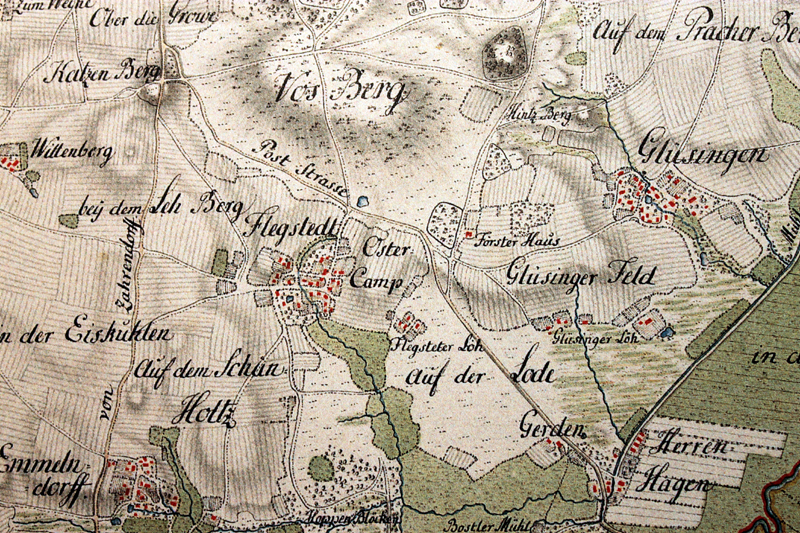 Zum Weihe
Ober die Growe
Auf dem Pracher Be
Katzen Berg
Vos Berg
Hintz Berg
Glüsingen
Wittenberg
Post Strasse
beÿ dem Leh Berg
Flegstedt
Oster
Camp
Förster Haus
Glüsinger Feld
Zahrendorf
von
n der Eiskuhlen
Flegsteter Loh
Glusinger Loh
Auf dem Schün
Holtz
Auf der Lode
in d
Gerden
Herren
Hagen
Emmeln
dorff.
Hoppen Blöcken
Bostler Mühl
Mühl